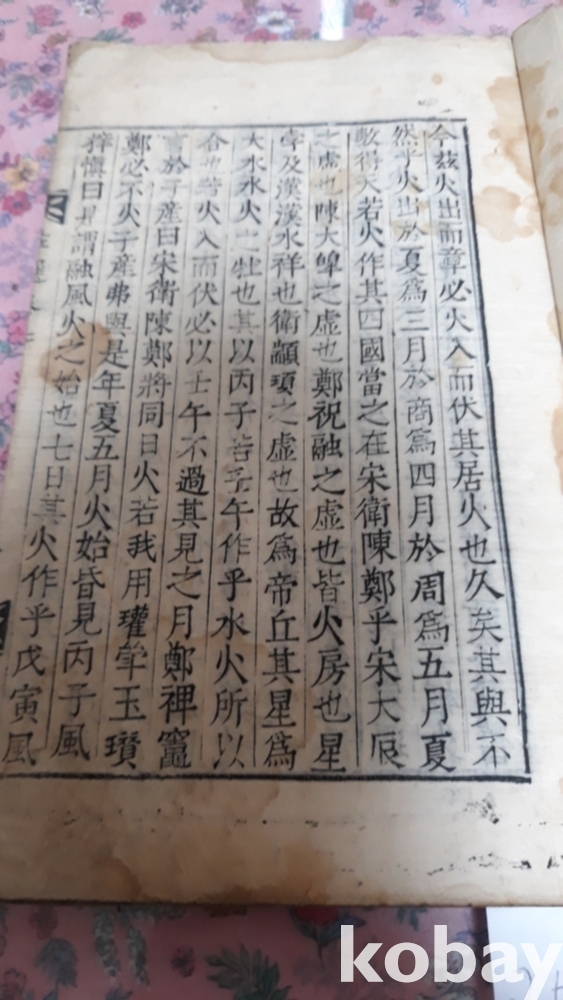 今玆火出而章必火入而伏其居火也久矣其與不
然乎火出於夏爲三月於商爲四月於周爲五月夏
數得天若火作其四國當之在宋衛陳鄭乎宋大辰
之虛也陳大皥之虛也鄭祝融之虛也皆火房也星
孛及漢漢水祥也衛顓頊之虛也故爲帝丘其星爲
大水水火之牡也其以丙子若壬午作乎水火所以
合也若火入而伏必以壬午不過其見之月鄭裨竈
言於子産曰宋衛陳鄭將同日火若我用瓘斝玉瓚
鄭必不火子産弗與是年夏五月火始昏見丙子風
梓愼曰是謂融風火之始也七日其火作乎戊寅風
kobay